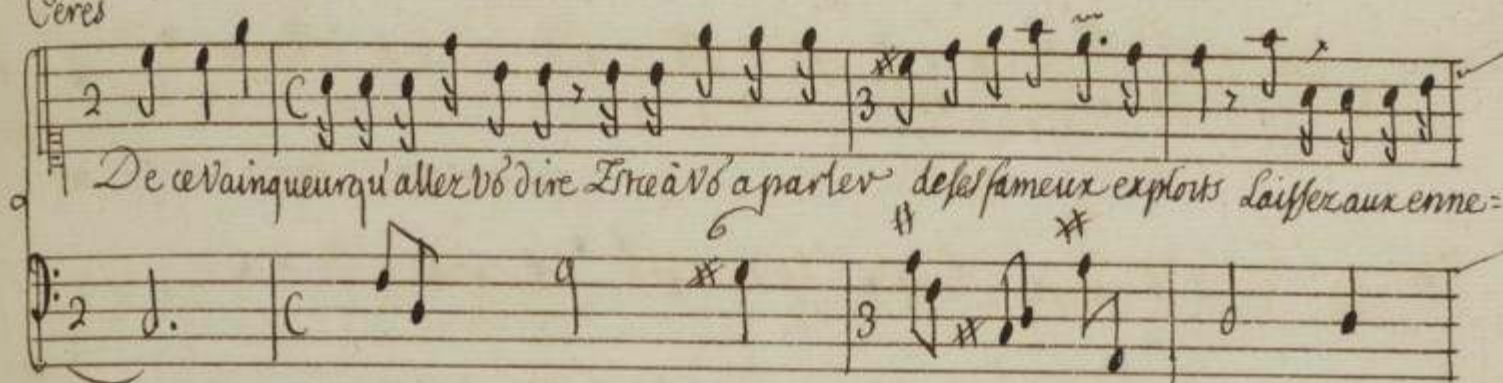 Ceres
2 C 3
De ce Vainqueur qu'allez vo dire Est ce à Vo a parler de ses fameux exploits Laissez aux enne=
6
2 C 3